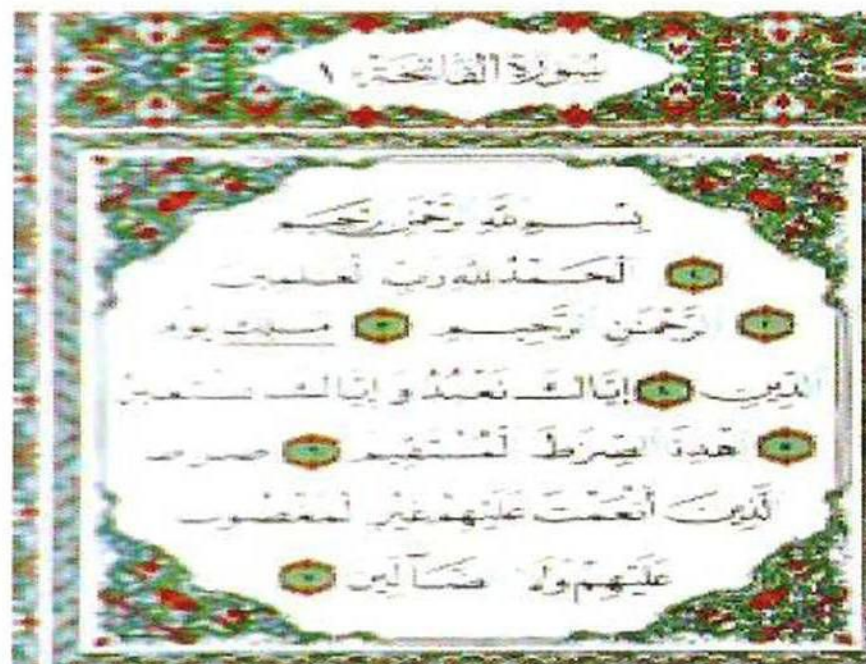 سورة الفاتحة ١
بسم الله الرحمن الرحيم
١ الحمد لله رب العلمين
٢ الرحمن الرحيم ٣ ملك يوم
الدين ٤ إياك نعبد وإياك نستعين
٥ اهدنا الصرط المستقيم ٦ صرط
الذين أنعمت عليهم غير المغضوب
عليهم ولا الضالين ٧